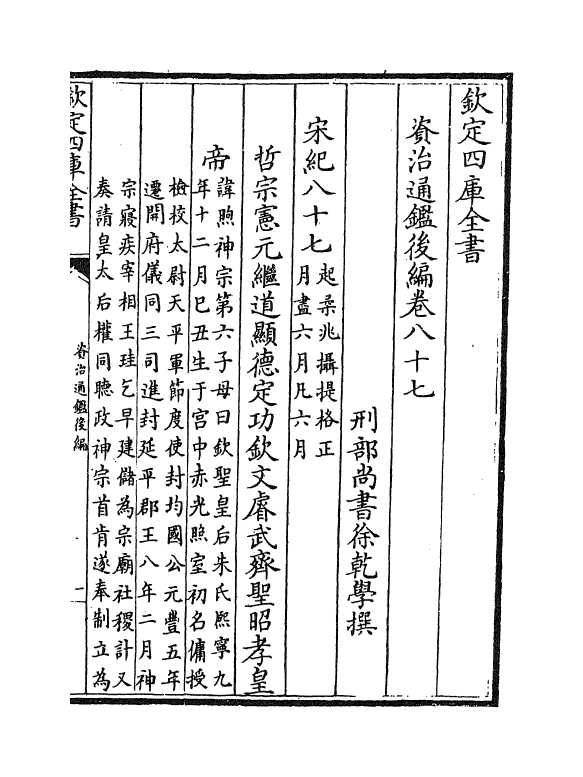 欽定四庫全書
資治通鑑後編卷八十七
刑部尚書徐乾學撰
宋紀八十七起柔兆攝提格正
月盡六月凡六月
哲宗憲元繼道顯德定功欽文睿武齊聖昭孝皇
帝諱煦神宗第六子母曰欽聖皇后朱氏熈寧九
年十二月巳丑生于宫中赤光照室初名傭授
檢校太尉天平軍節度使封均國公元豐五年
遷開府儀同三司進封延平郡王八年二月神
宗寢疾宰相王珪乞早建儲為宗廟社稷計又
奏請皇太后權同聽政神宗首肯遂奉制立為
欽定四庫全書
資治通鑑後編
一